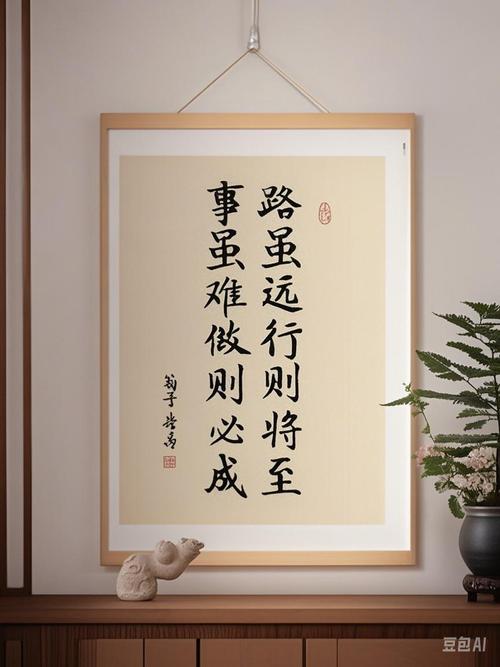 路虽远行则将至
事虽难做则必成
豆包AI